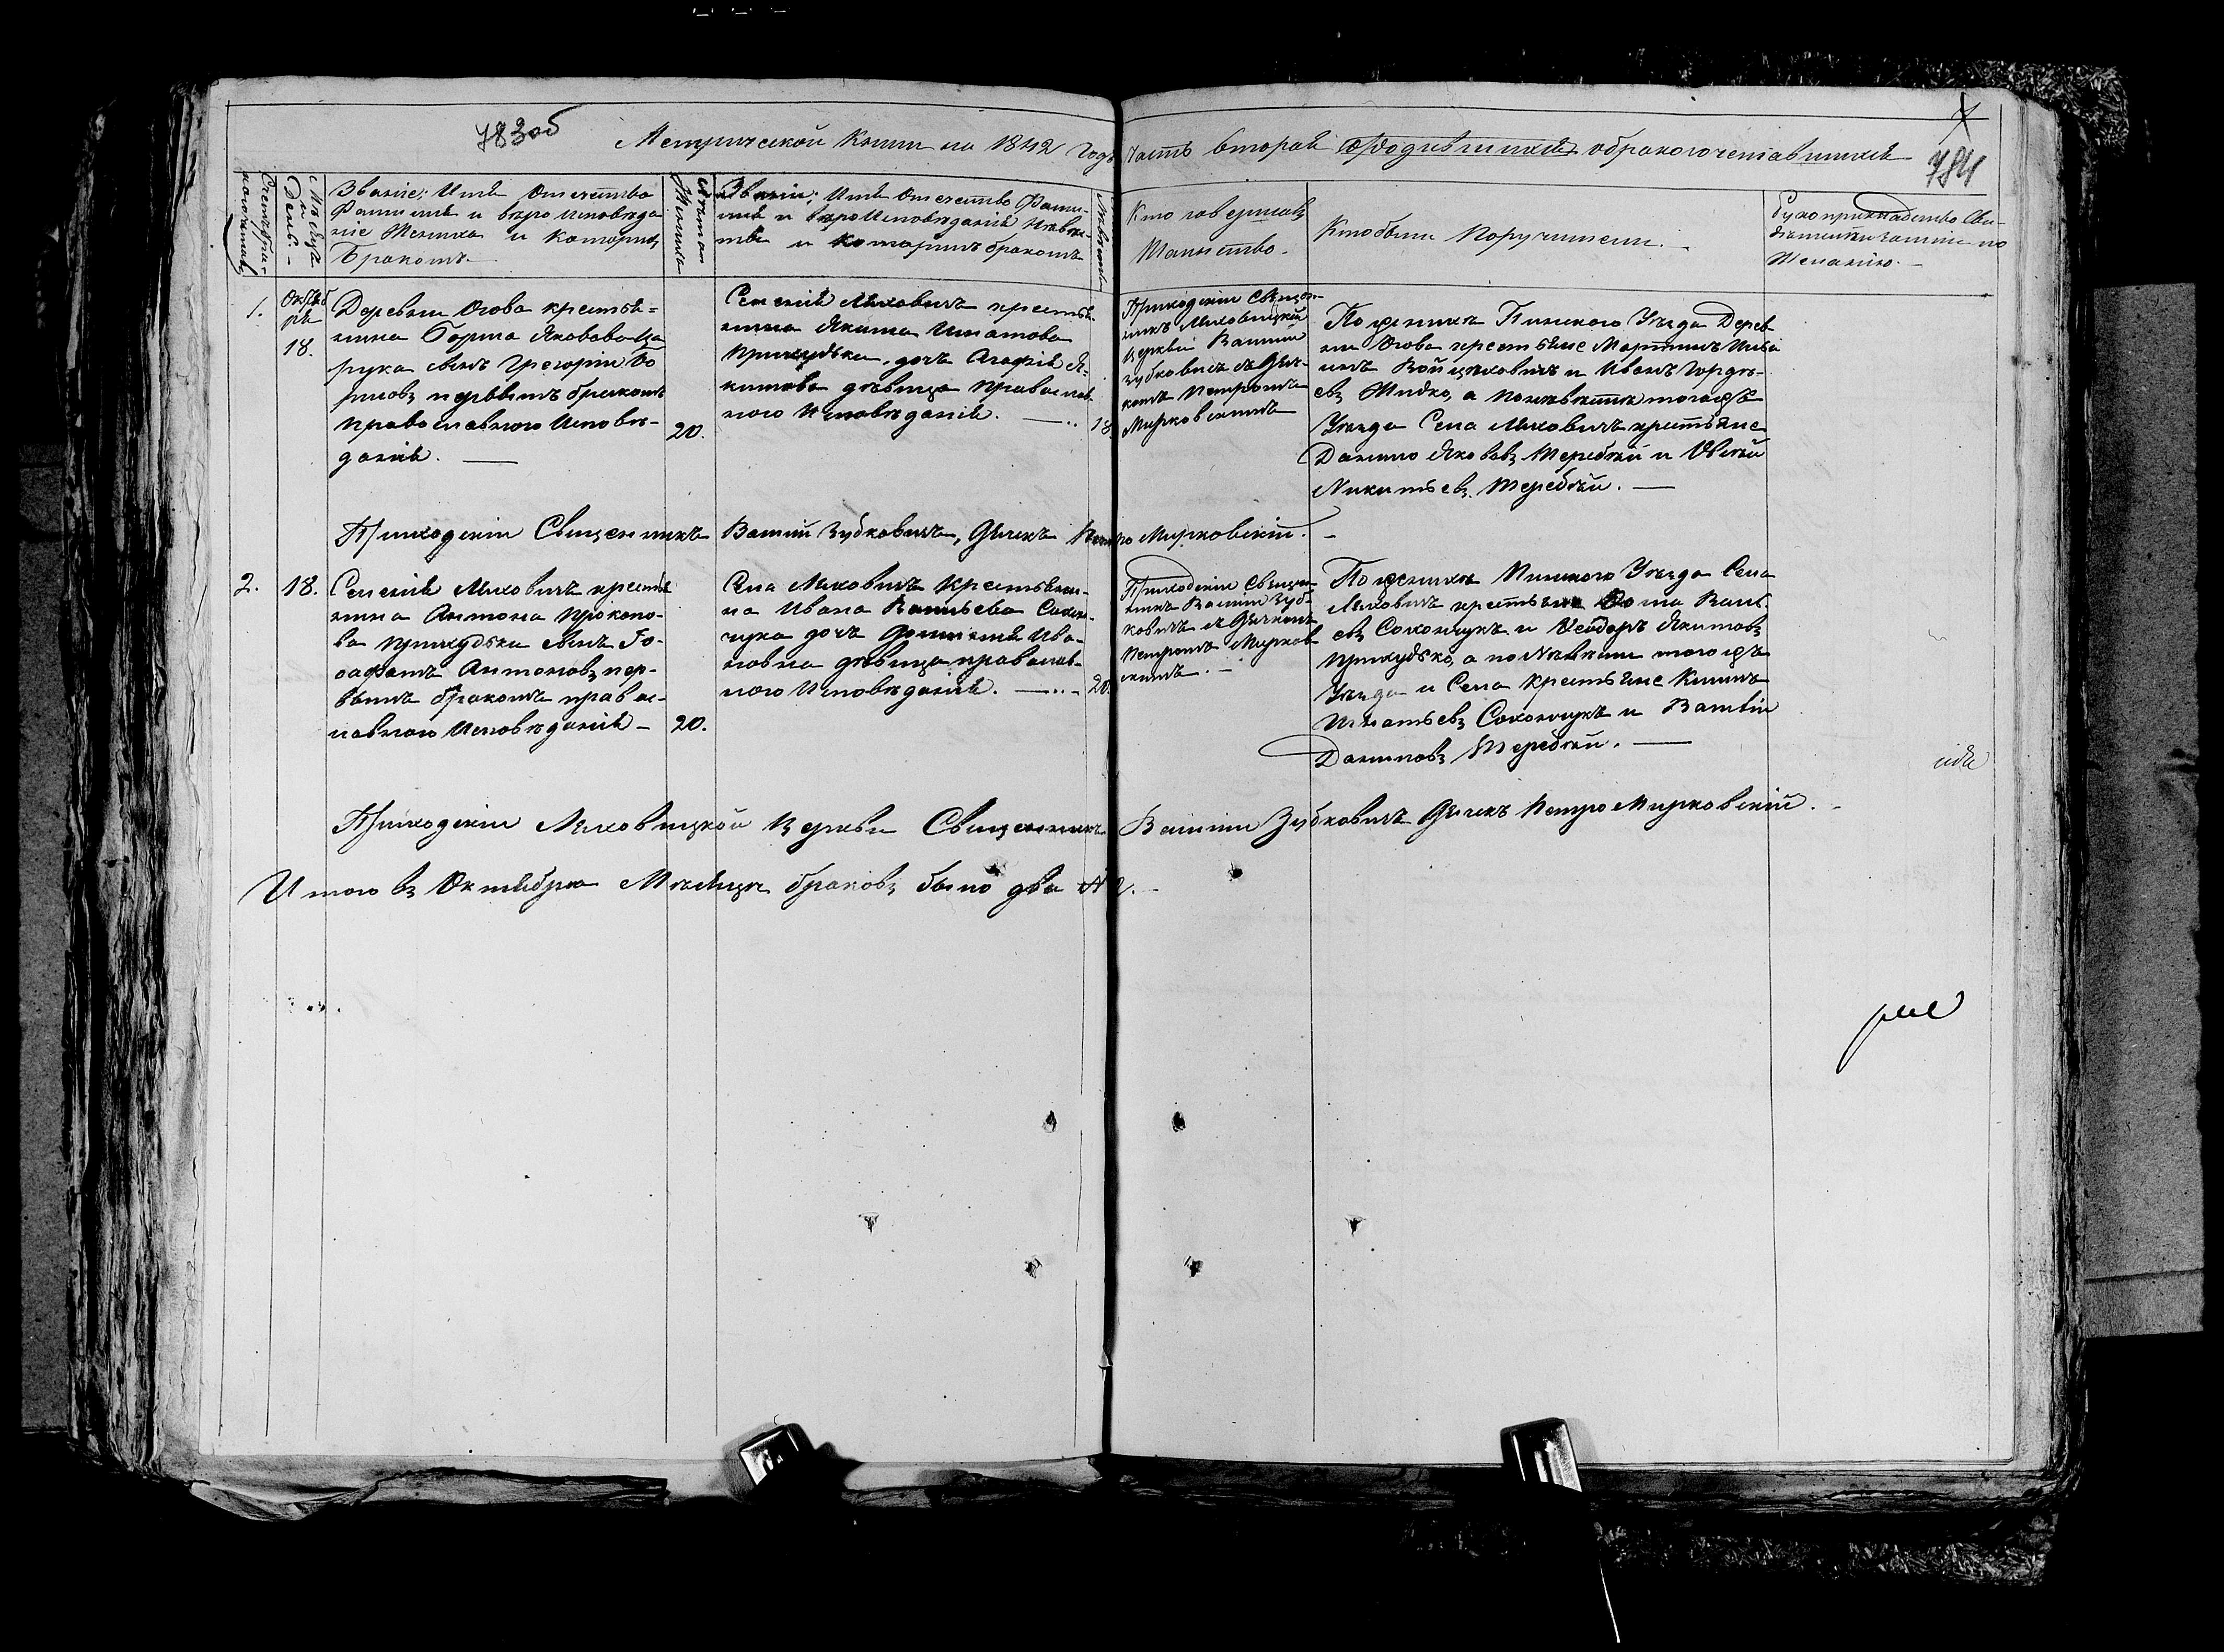 783об
Метрической Книги на 1842 Годъ часть вторая о бракосочетавшихся
784
Счетъ бра-
косочетав.
Мѣсяцъ
и
День.
Званіе; Имя Отечество
Фамилія и вѣроисповѣда
ніе Жениха и которымъ
Бракомъ
Лѣта
Жениха
Званіе; Имя Отечество Фами-
лія и вѣроИсповѣданія Невѣс-
ты и которимъ бракомъ
Невѣсты
Кто совершалъ
Таинство.
Кто были Поручители.
Рукоприкладство Сви-
дѣтелей записи по
Желанію.
1.
Октяб
ря
18.
Деревни Огова крестья=
нина Бориса Яковова Ца
рука сынъ Григорій Бо
рисовъ первымъ бракомъ
православного Исповѣ-
данія.
20.
Селенія Мыховичъ крестья-
нина Якима Игнатова
Прикудька, дочъ Агафія Я-
кимова дѣвица православ-
ного Исповѣданія.
18
Приходскій Священ-
никъ
Церкви Василій
Зубковичъ съ Дяч-
комъ Петромъ
Мирковскимъ
По женихѣ Пинского Уѣзда Дерев
ни Огова крестьяне Мартинъ
Войцѣховичъ и Иванъ Гордѣ-
евъ Жидко, а по невѣстѣ тогожъ
Уѣзда Села Мыховичъ крестьяне
Данило Яковъ Теребей и
Никитьевъ Теребей.
Приходскій Священникъ Василій Зубковичъ, Дячекъ Петро Мирковскій.
2.
18.
Селенія Мыховичъ крестья
нина Антона Прокопо-
ва Прикудьки сынъ Іо-
сафатъ Антоновъ пер-
вымъ бракомъ правос-
лавного Исповѣданія
20.
Села Мыховичъ Крестьяни-
на Ивана Сахон-
чука дочъ Ива-
новна дѣвица православ-
ного Исповѣданія.
20.
Приходскій Священ-
никъ Василій Зуб-
ковичъ съ Дячкомъ
Петромъ Мирков-
скимъ.
По женихѣ Пинского Уѣзда Села
Мыховичъ крестьяне
евъ Сохончукъ и Якимовъ
Прикудько, а по Невѣсти тогожъ
Уѣзда и Села крестьяне
Игнатьевъ Сохончукъ и Василій
Даниловъ Теребей.
Приходскій Церкви Священникъ Василій Зубковичъ Дячекъ Петро Мирковскій.
Итого въ Октябрѣ Мѣсяцѣ браковъ было два № 2.